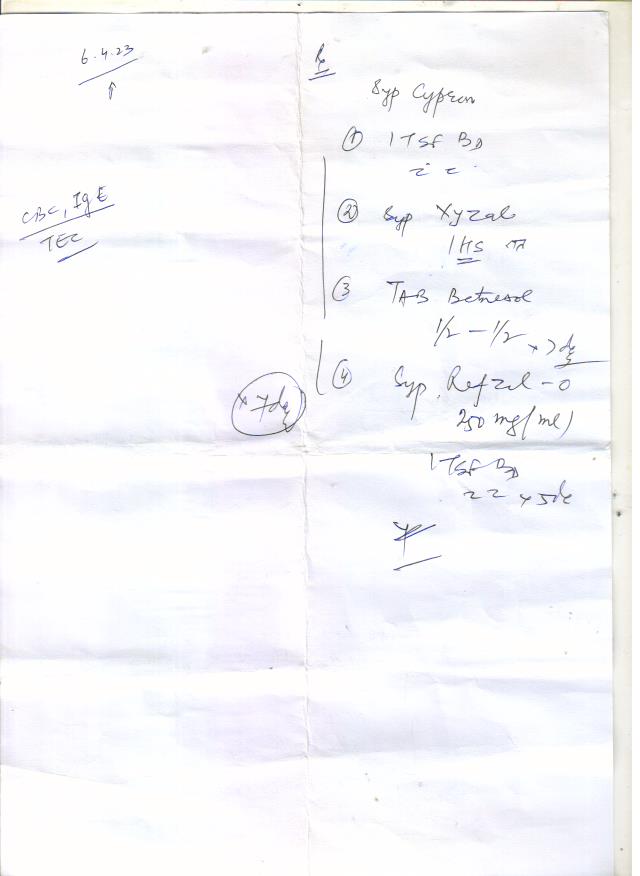 6.4.23
CBC, IgE
TEC
Rx
Syp Cypcon
① 1 TSF BD
② Syp Xyzal
1 HS
③ TAB Betnesol
1/2 - 1/2 x 7 dy
④ Syp. Refzil - O
250 mg (ml)
x 7 dy
1 TSF BD
x 5 d